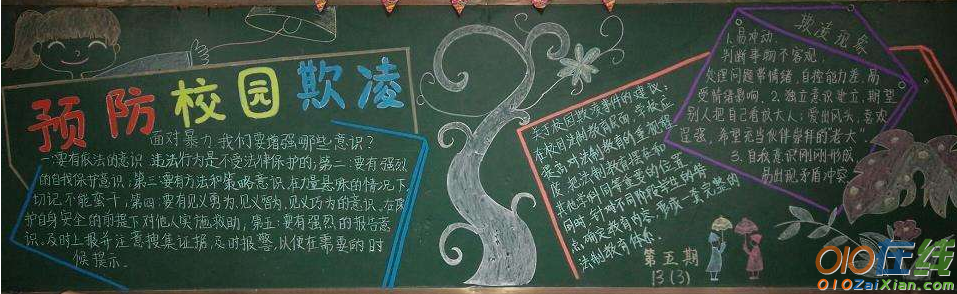 预防校园欺凌
面对暴力我们要增强哪些意识?
一要有依法的意识 违法行为是不受法律保护的;第二:要有强烈
的自我保护意识,第三:要有方法和策略意识,在力量悬殊的情况下
切记,不能蛮干,第四:要有见义勇为,见义智为,见义巧为的意识,在保
护自身安全的前提下对他人实施救助,第五:要有强烈的报告意
识,及时上报并注意搜集证据,及时报警,以便在需要的时
候提示.
关于校园欺凌事件的建议:
在校内法制教育层面,学校应
提高对法制教育的重视程
度,把法制教育摆在和
其他学科同等重要的位置
同时,针对不同阶段学生的特
点,确定教育内容,形成一套完整的
法制教育体系.
第五期
13(3)
欺凌现象
1.易冲动.
判断事物不客观,
处理问题带情绪,自控能力差,易
受情绪影响.2.独立意识建立,期望
别人把自己看似大人;爱出风头,喜欢
逞强,希望充当伙伴身样的老大"
3.自我意识刚刚形成
易出现矛盾冲突
010在线
010ZaiXian.com